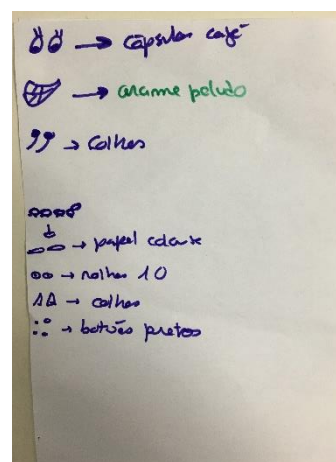 → capsulas café
→ arame peludo
→ colhes
→ papel colante
→ rolhas 10
→ colhes
→ botões pretos